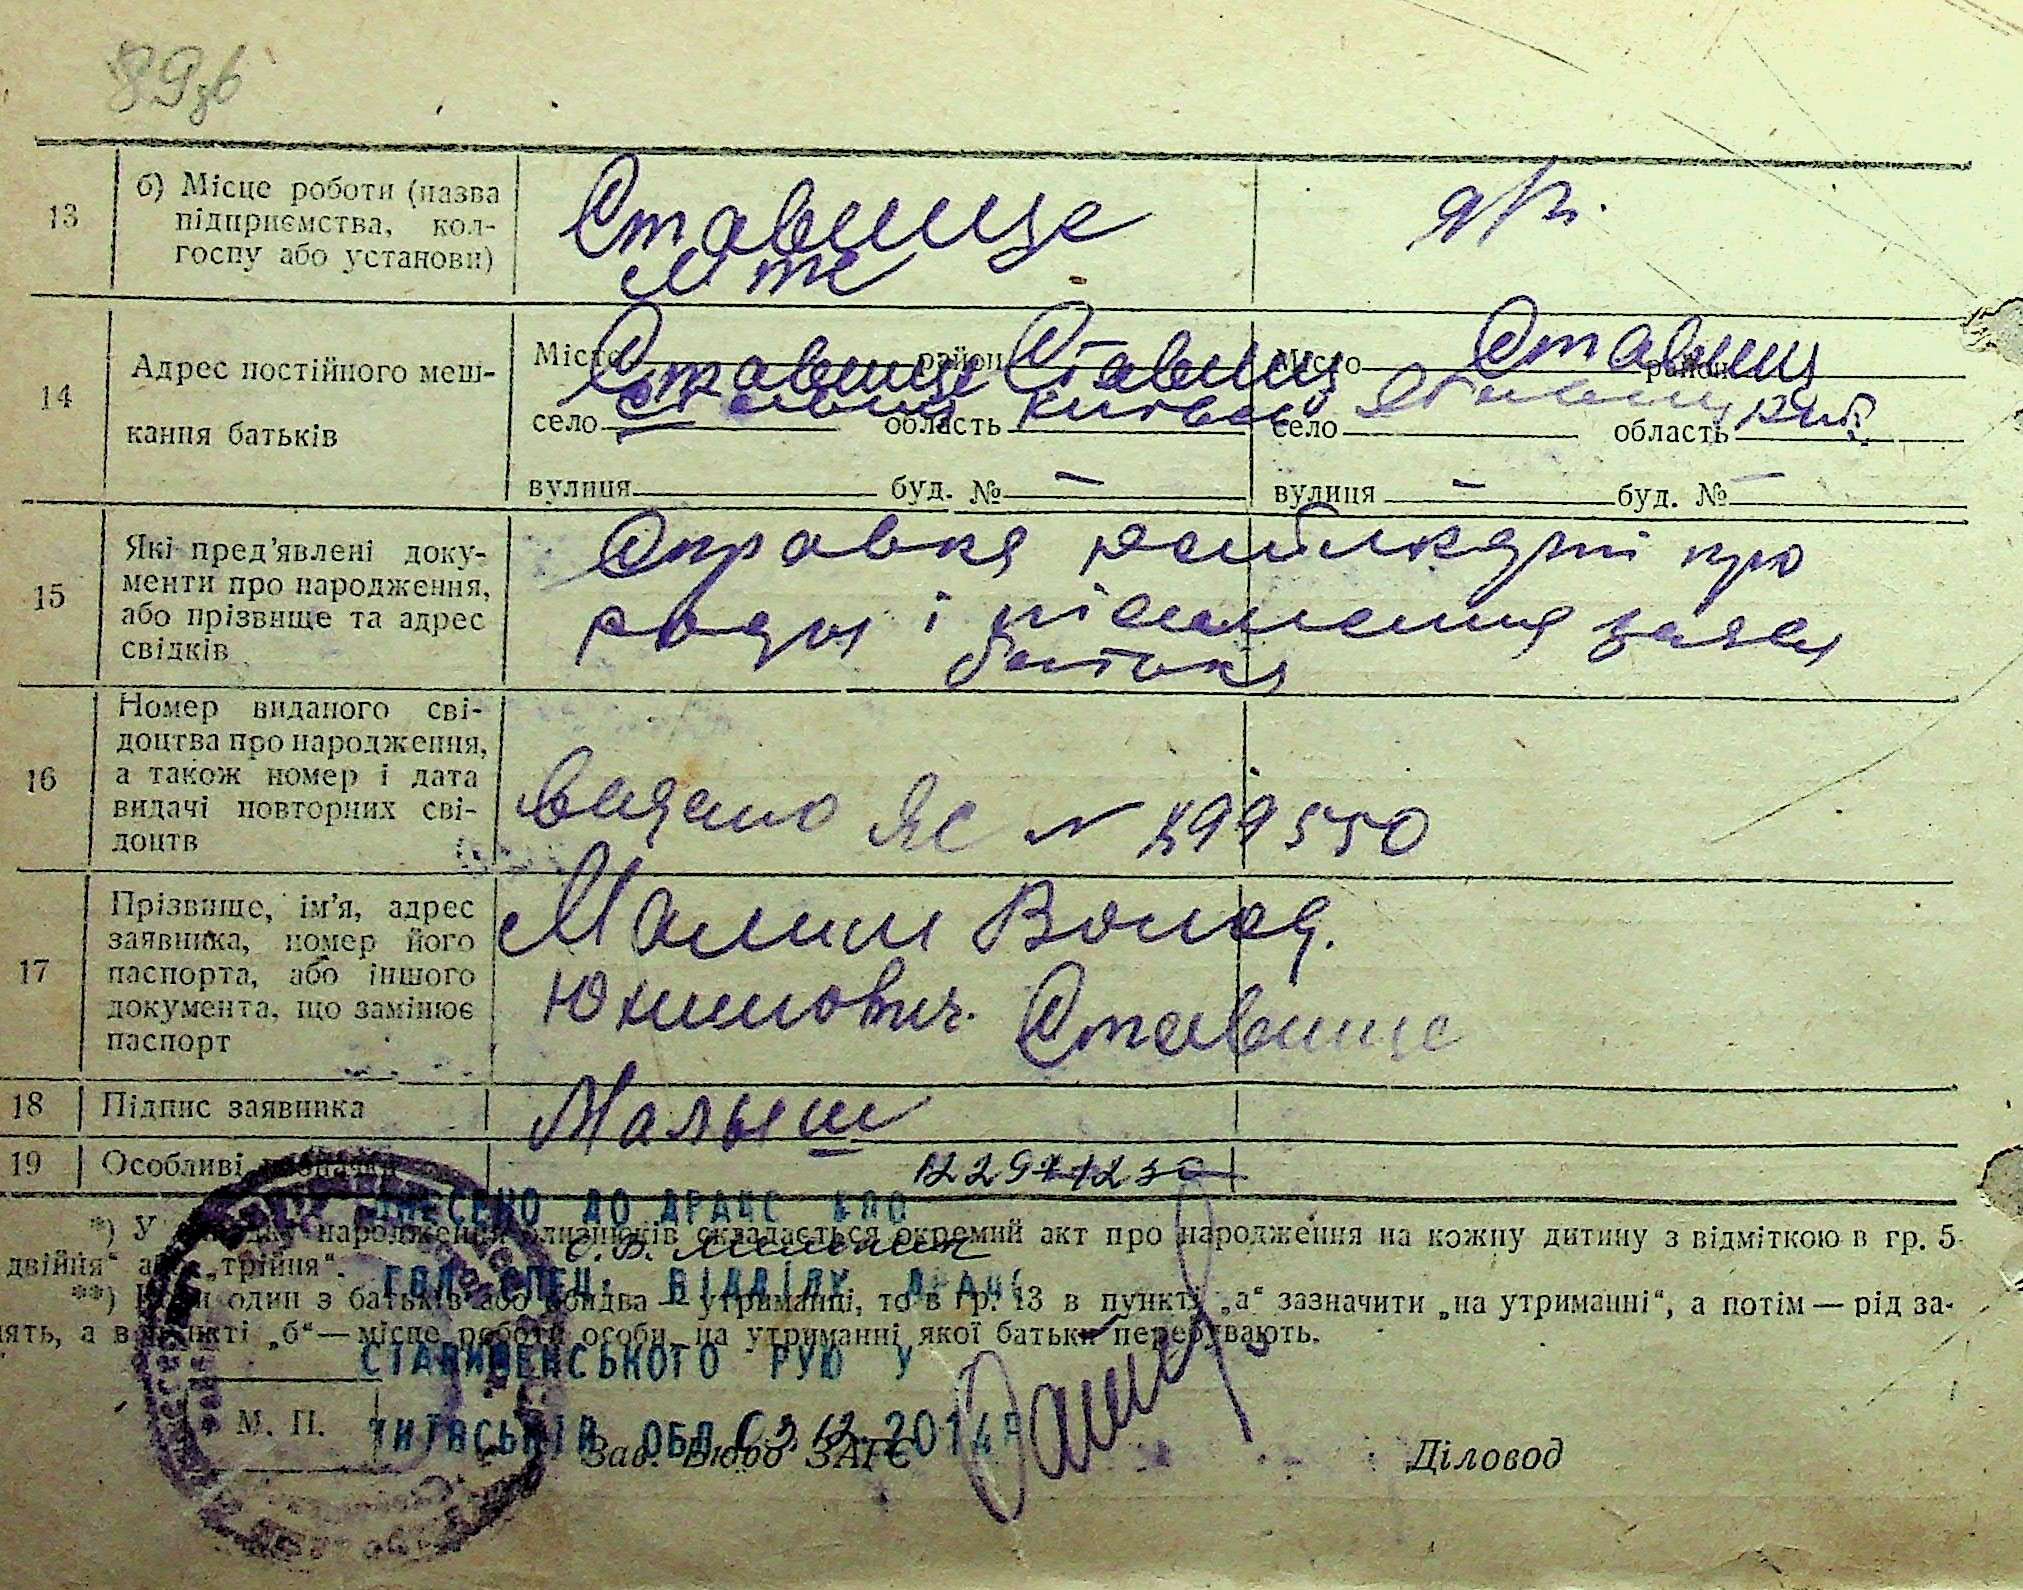 89зв
13
б) Місце роботи (назва
підприємства, кол-
госпу або установи)
Ставище
МТС
14
Адрес постійного меш-
кання батьків
Місто Ставище район Ставищ
село Ставищ область Київськ
вулиця буд. № —
Місто Ставищ район
село Ставищ область Київ
вулиця — буд. № —
15
Які пред’явлені доку-
менти про народження,
або прізвище та адрес
свідків
Справка про
роди і заява
батька
16
Номер виданого сві-
доцтва про народження,
а також номер і дата
видачі повторних сві-
доцтв
Видано ЯС № 499550
17
Прізвище, ім’я, адрес
заявника, номер його
паспорта, або іншого
документа, що замінює
паспорт
Малиш Волод.
Юхимович. Ставище
18
Підпис заявника
Малыш
19
Особливі
ВНЕСЕНО ДО ДРАЦС
*) У народження близнюків складається окремий акт про народження на кожну дитину з відміткою в гр. 5
„двійня“ або „трійня“.
ГОЛ. СПЕЦ. ВІДДІЛУ ДРАЦС
**) Коли один з батьків або обидва — утриманці, то в гр. 13 в пункті „а“ зазначити „на утриманні“, а потім — рід за-
нять, а в пункті „б“ — місце роботи особи, на утриманні якої батьки перебувають.
СТАВИЩЕНСЬКОГО РУЮ У
М. П.
КИЇВСЬКІЙ ОБЛ. 2014
Зав. Бюро ЗАГС
Діловод